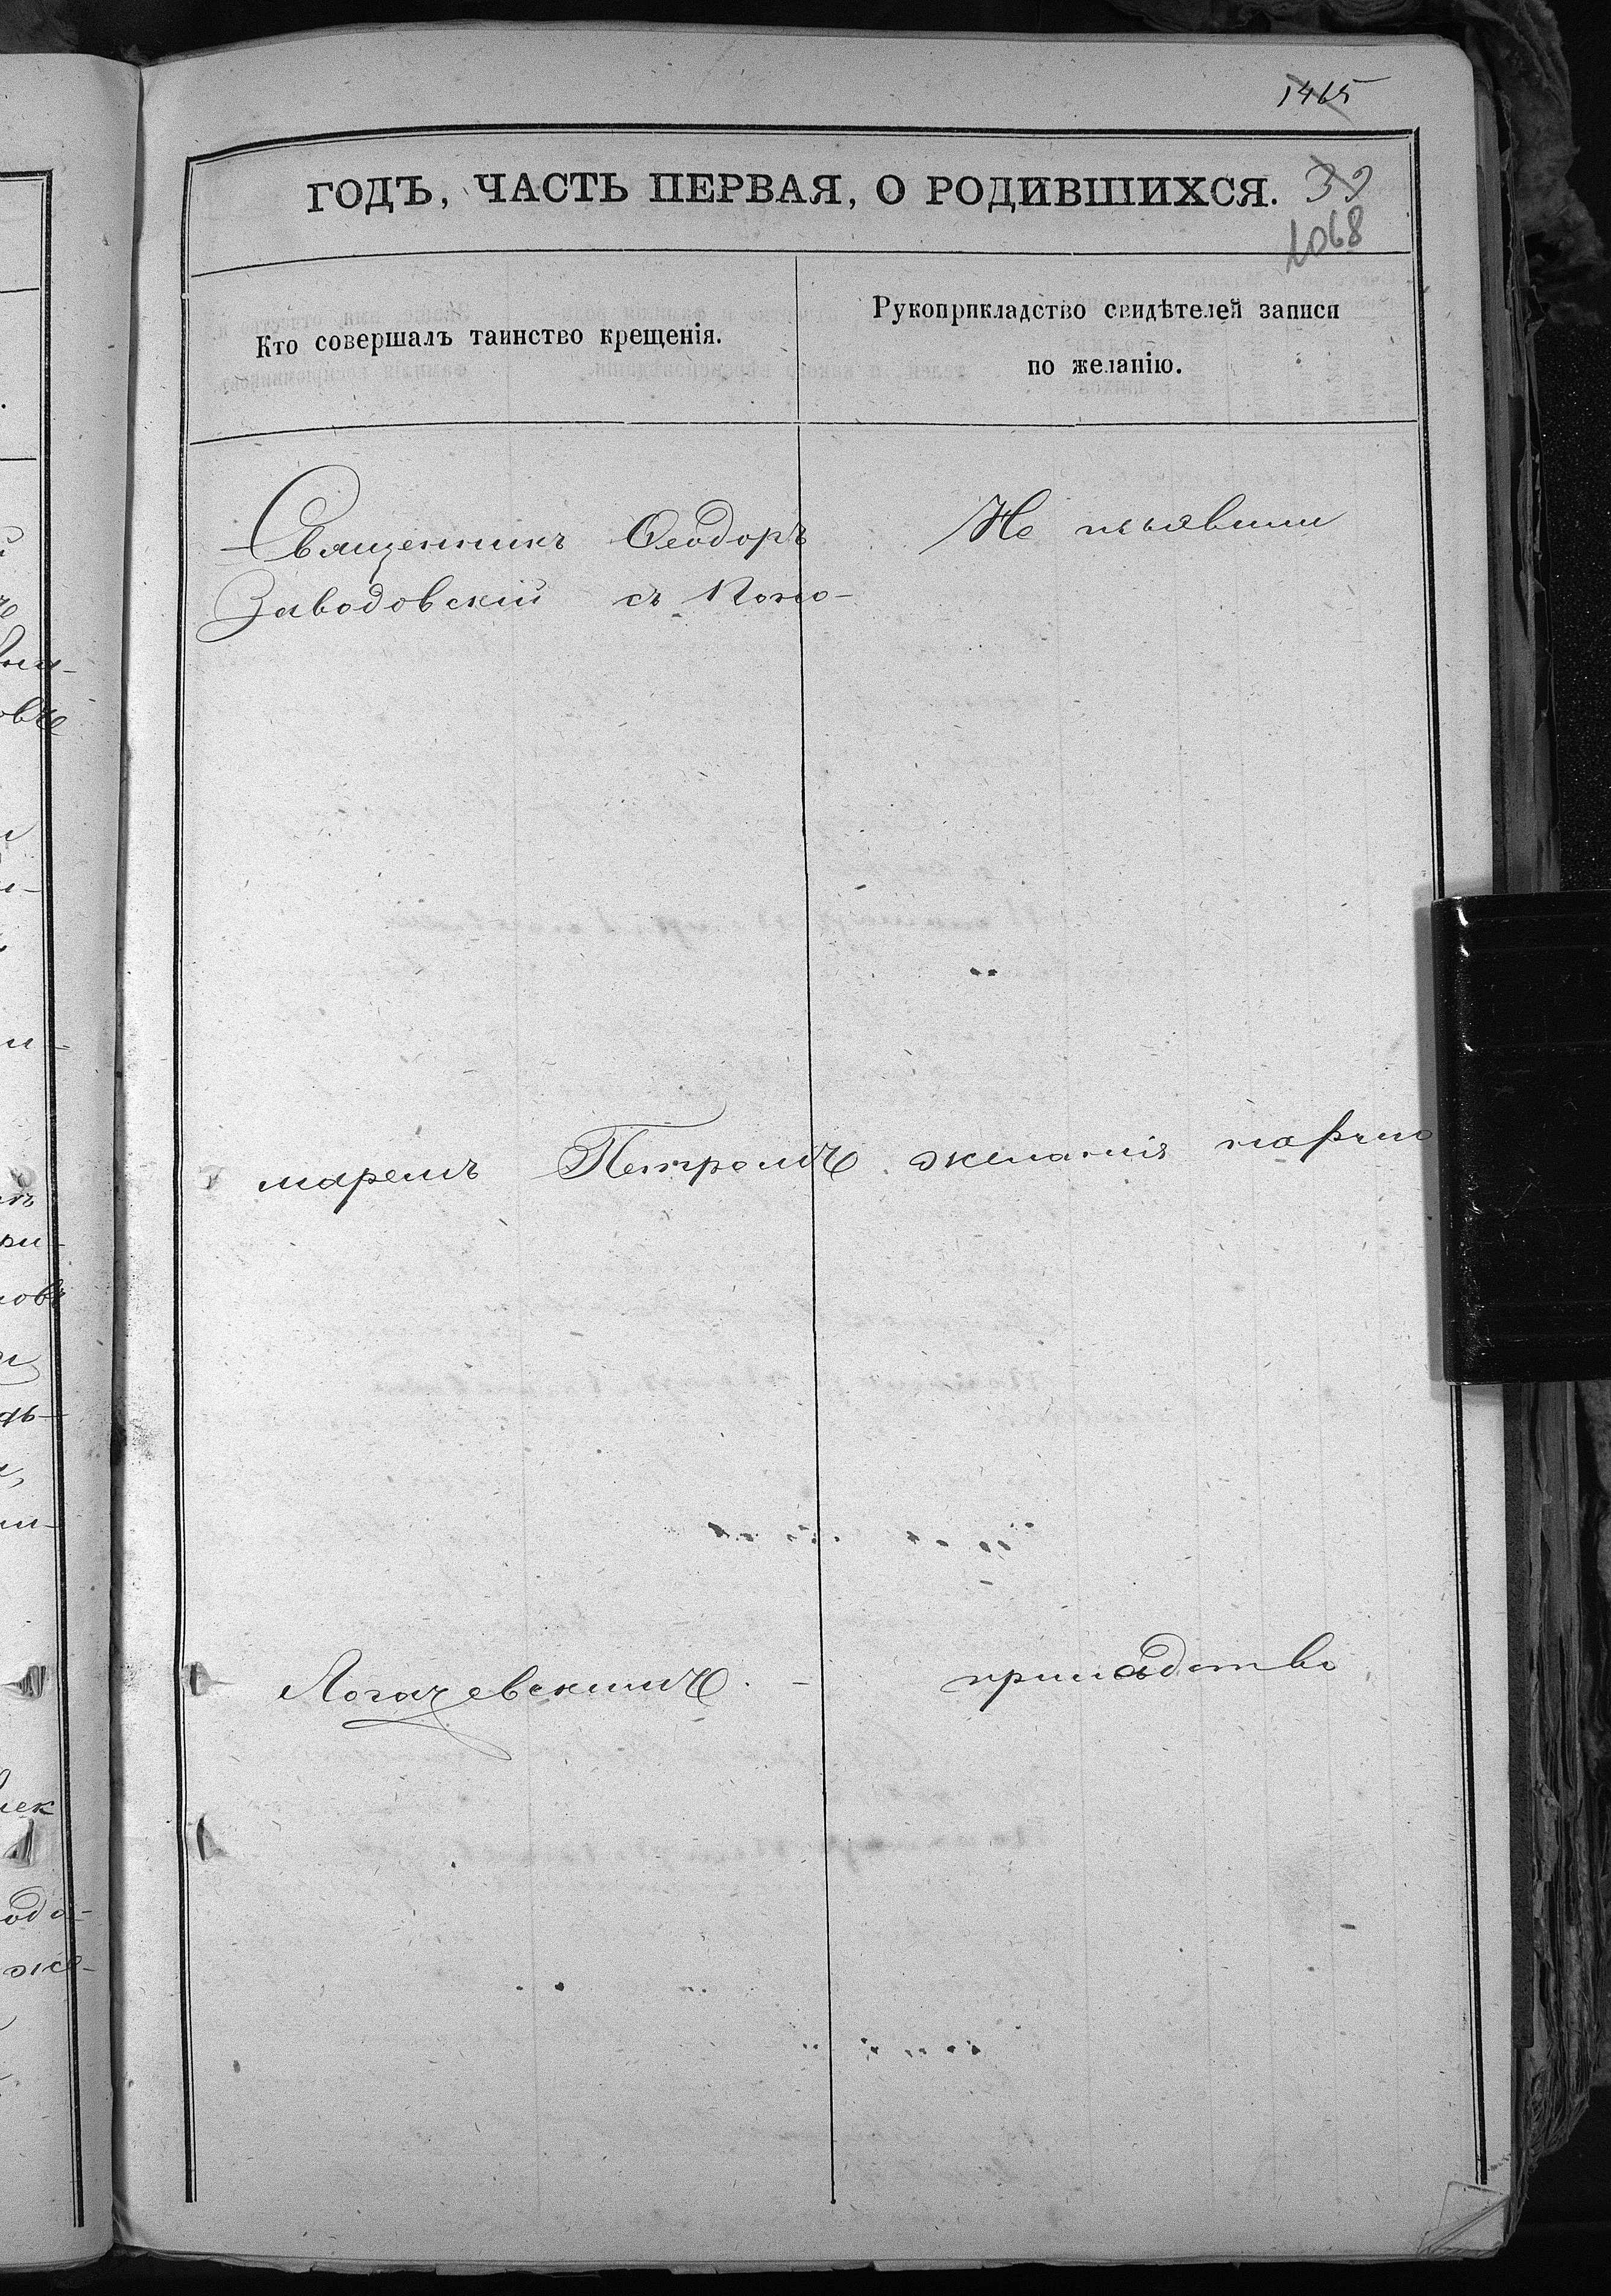 1465
ГОДЪ, ЧАСТЬ ПЕРВАЯ, О РОДИВШИХСЯ.
39
1068
Кто совершалъ таинство крещенія.
Рукоприкладство свидѣтелей записи
по желанію.
Священникъ Ѳеодоръ
Заводовскій съ Поно-
маремъ Петромъ
Логачевскимъ. -
Не изъявили
желанія на руко
прикладство